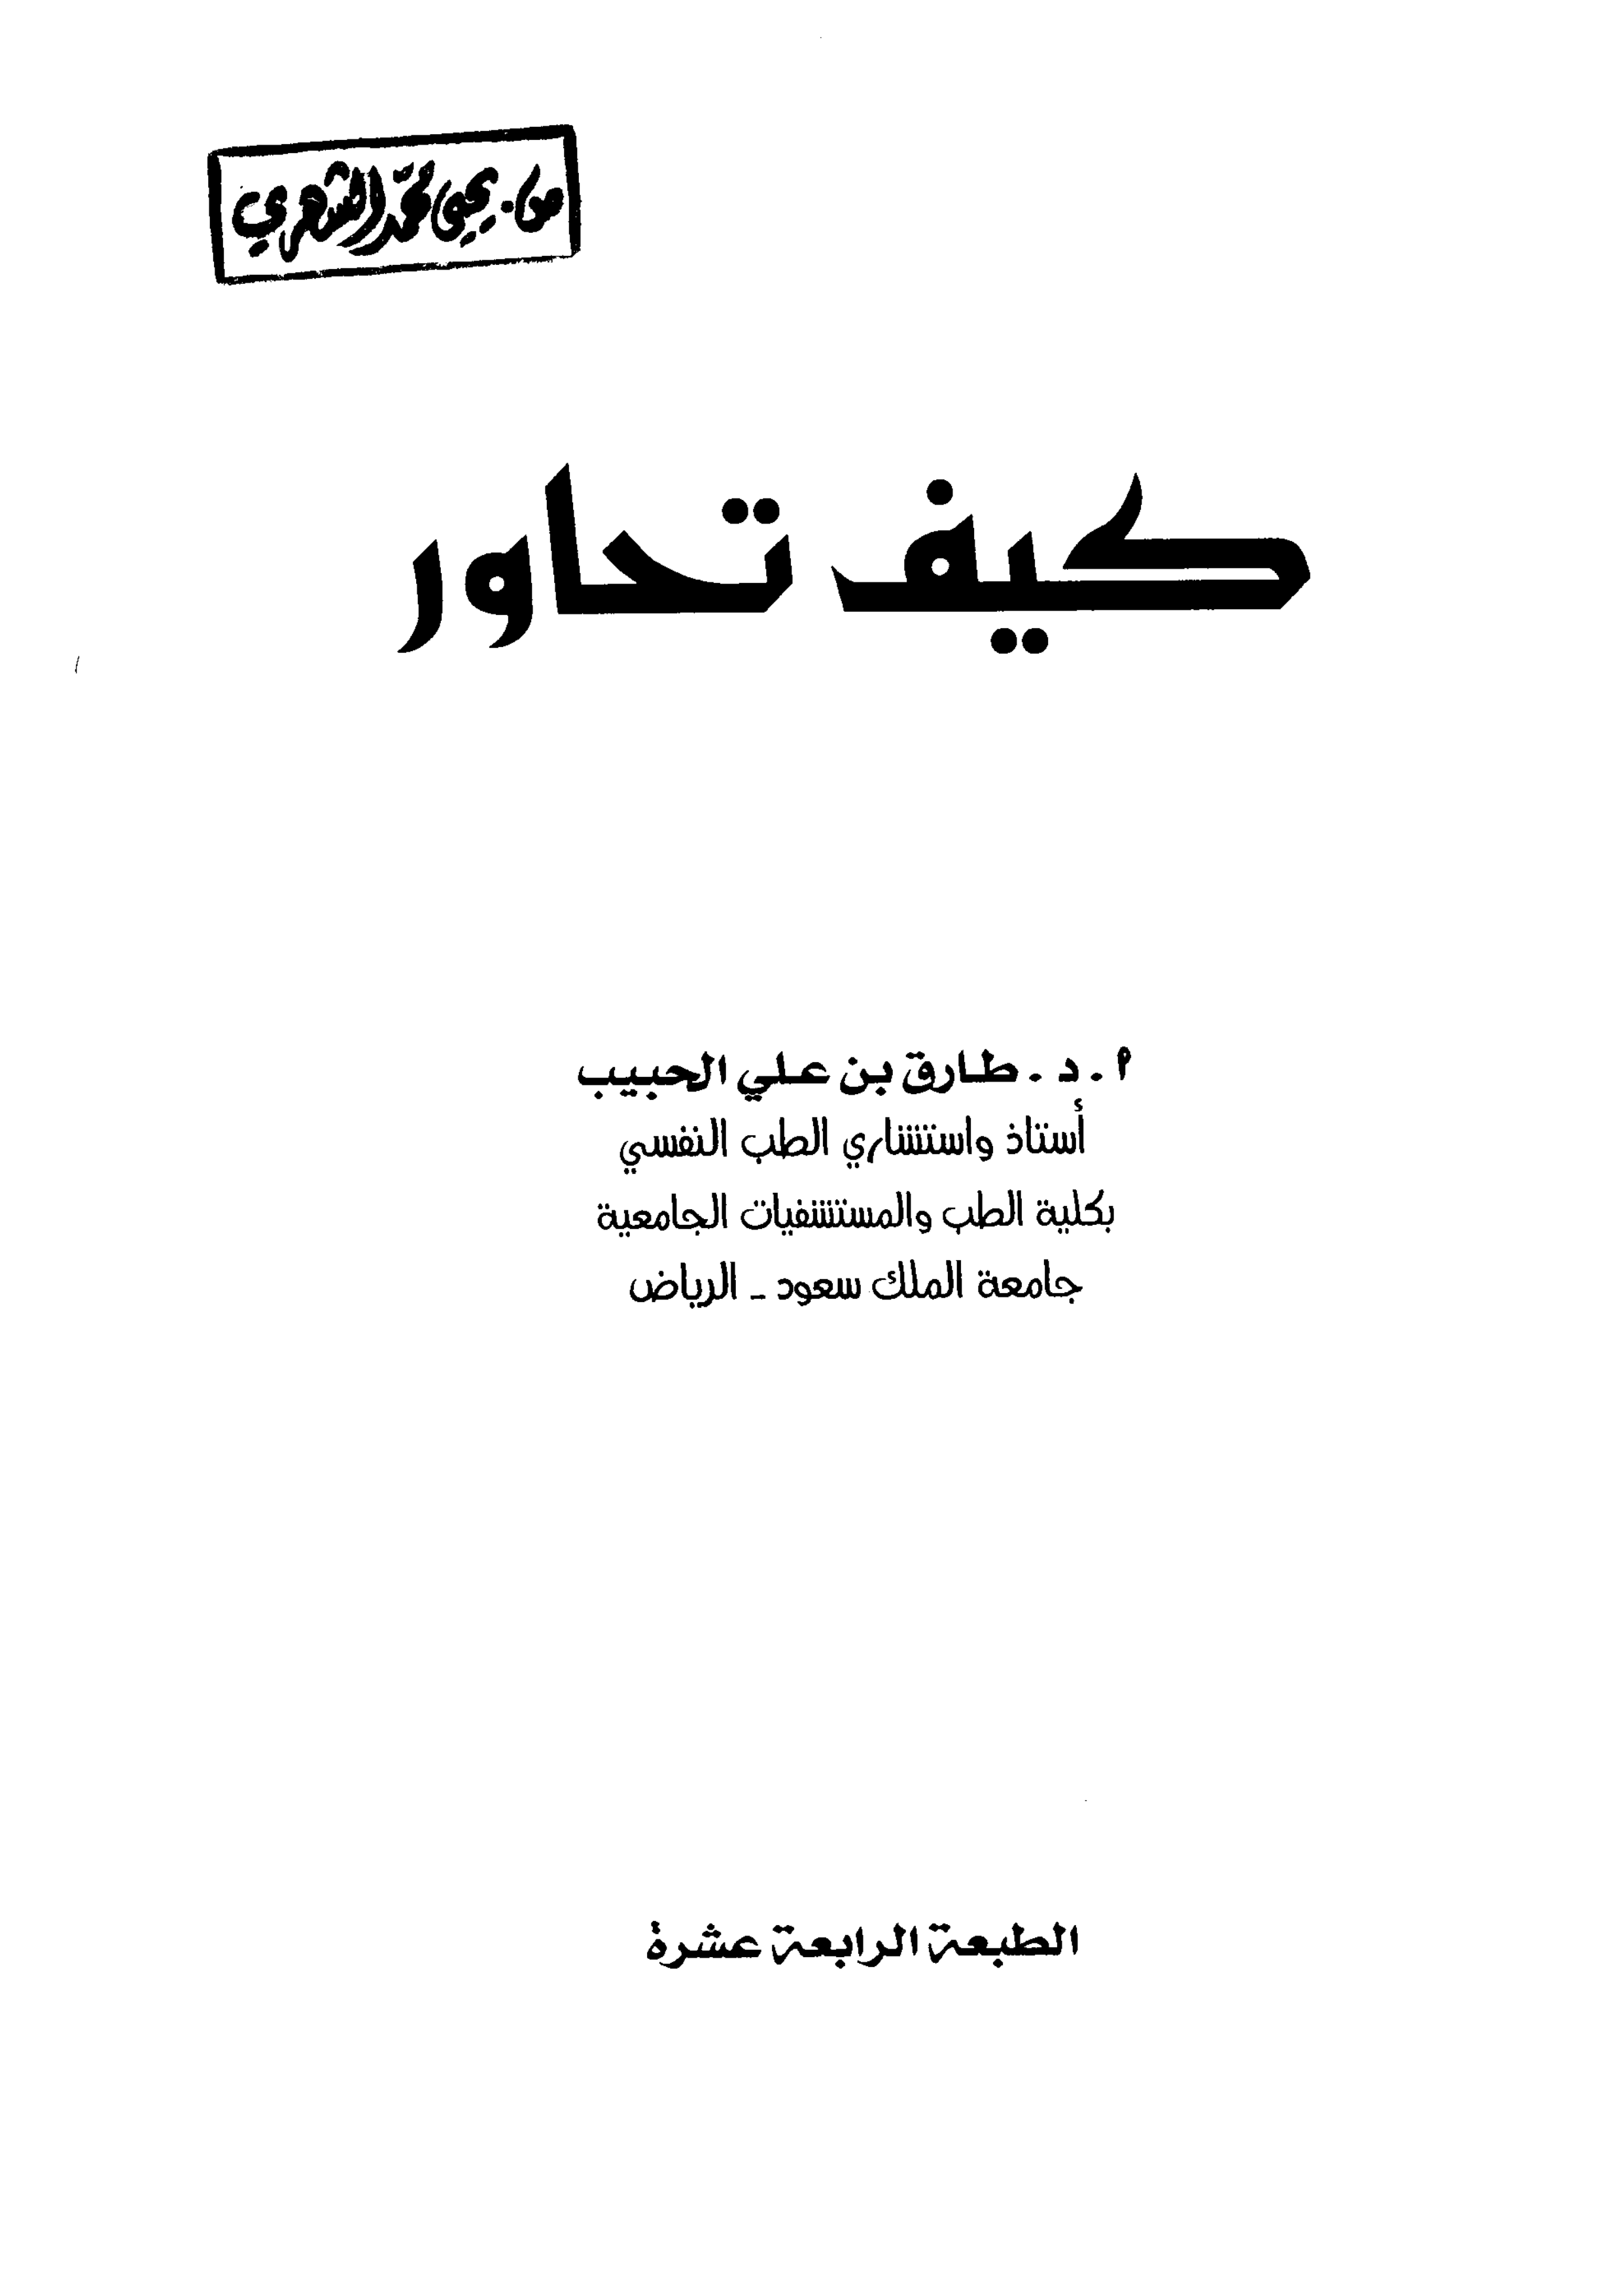 يحيى محمد الشهري
كيف تحاور
أ . د . طارق بن علي الحبيب
أستاذ واستشاري الطب النفسي
بكلية الطب والمستشفيات الجامعية
جامعة الملك سعود - الرياض
الطبعة الرابعة عشرة